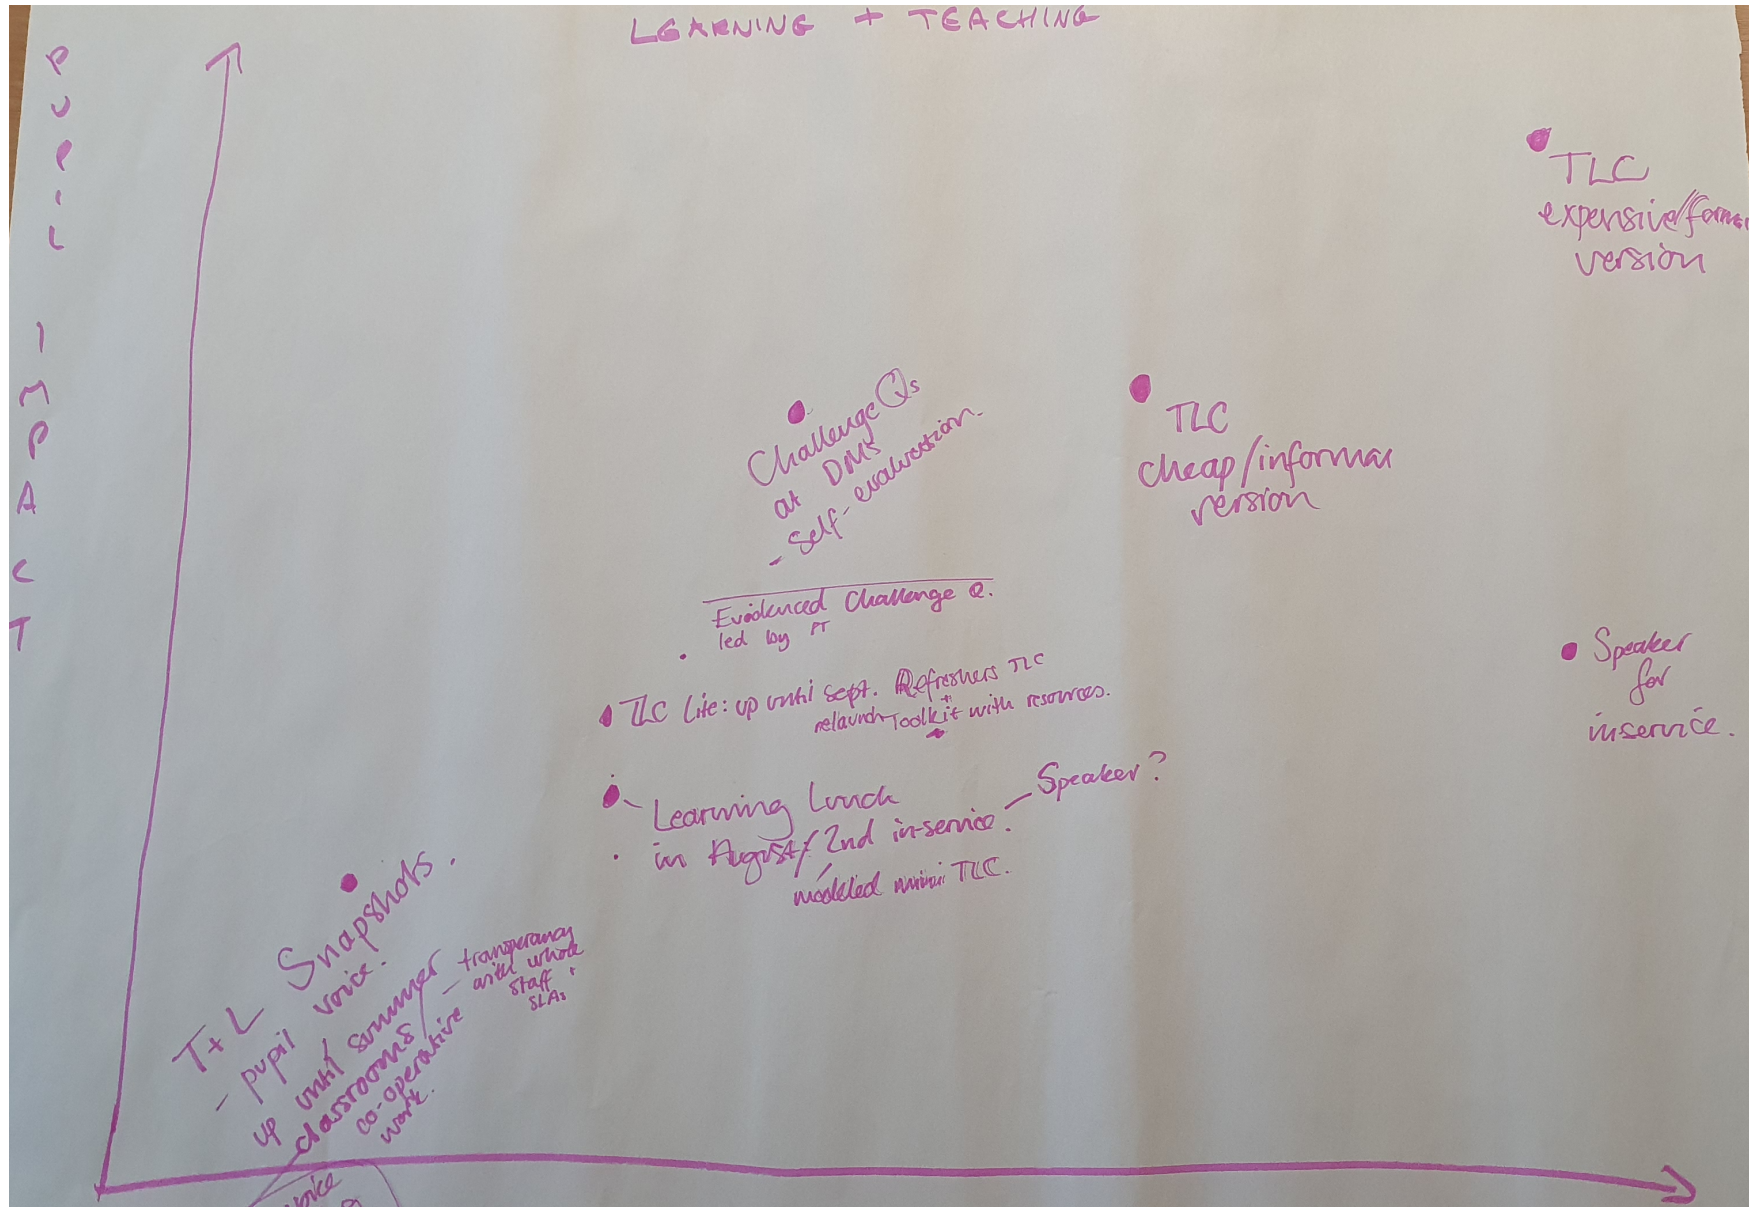 LEARNING + TEACHING
PUPIL IMPACT
TLC
expensive/formal
version
Challenge Qs
at DMs
- Self-evaluation.
TLC
cheap/informal
version
Evidenced Challenge Q.
led by PT
Speaker
for
inservice.
TLC Lite: up until Sept. Refreshers TLC
relaunch Toolkit with resources.
Learning Lunch
in August/2nd in-service. — Speaker?
modelled mini TLC.
T+L Snapshots.
- pupil voice.
up until summer
classrooms/
co-operative
work.
- transperancy
with whole
staff
SLAs
voice